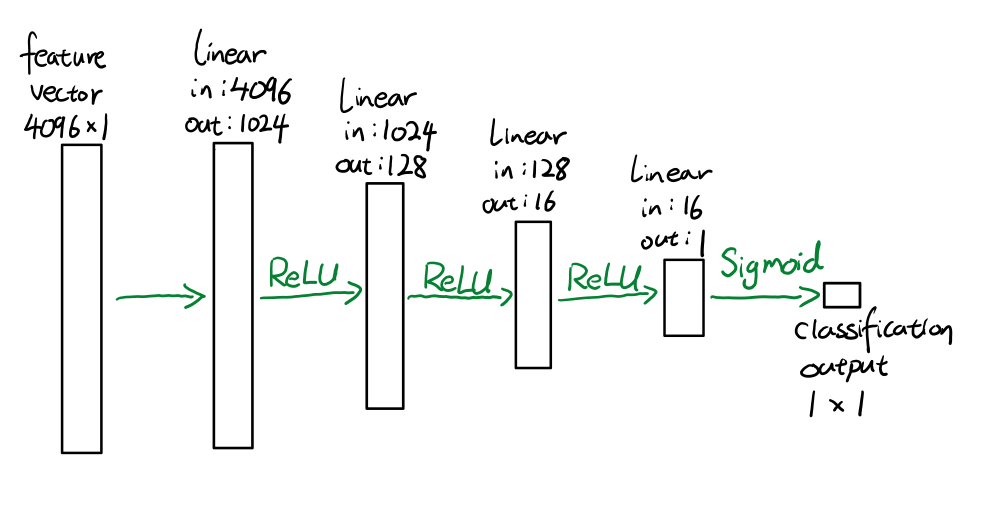 feature
vector
4096 × 1
Linear
in : 4096
out : 1024
Linear
in : 1024
out : 128
Linear
in : 128
out : 16
Linear
in : 16
out : 1
ReLU
ReLU
ReLU
Sigmoid
classification
output
1 × 1